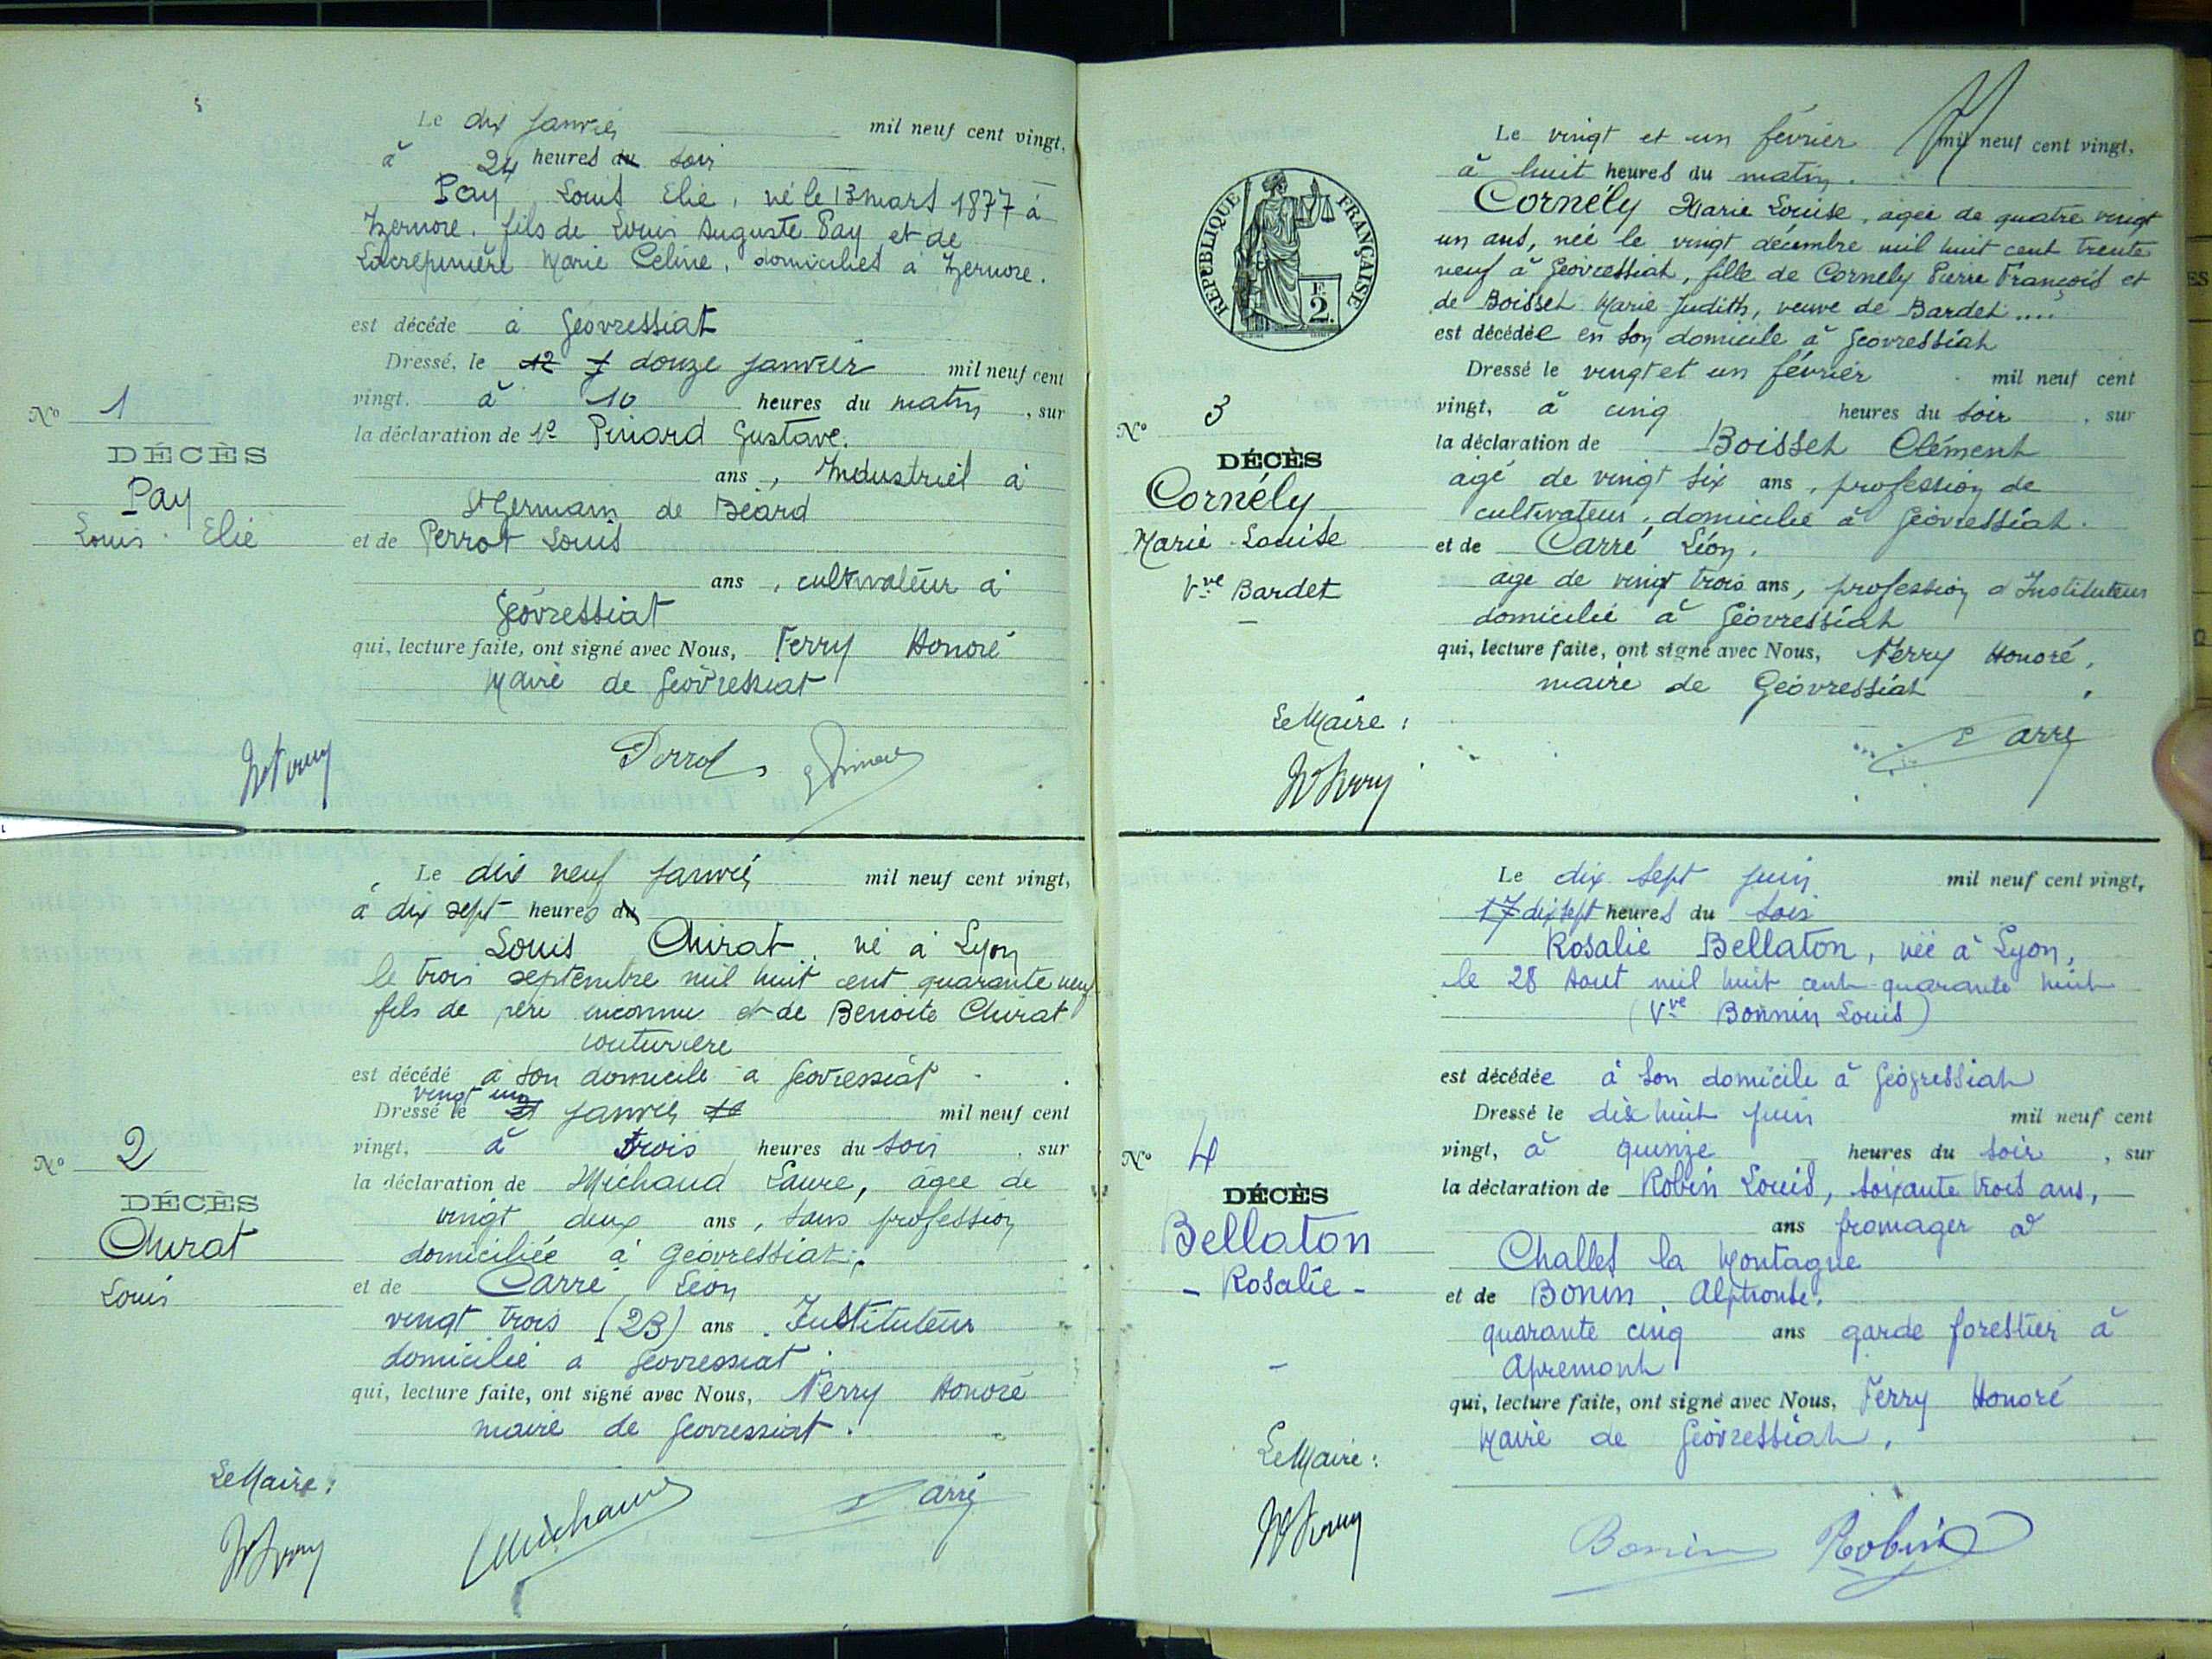 Le dix Janvier mil neuf cent vingt,
à 24 heures du soir
Pay Louis Elie, né le 13 mars 1877 à
Izernore, fils de Louis Auguste Pay et de
Lacrepinière Marie Celine, domiciliés à Izernore.
est décédé à Géovressiat
Dressé, le 12 J douze Janvier mil neuf cent
vingt. à 10 heures du matin, sur
la déclaration de 1º Pinard Gustave.
ans, Industriel à
St Germain de Béard
et de Perrot Louis
ans, cultivateur à
Géovressiat
qui, lecture faite, ont signé avec Nous, Ferry Honoré
Maire de Géovressiat
Nº 1
DÉCÈS
Pay
Louis Elie
HFerry Perrot GPinard
Le dix neuf Janvier mil neuf cent vingt,
à dix sept heures du
Louis Chirat, né à Lyon
le trois septembre mil huit cent quarante neuf
fils de père inconnu et de Benoite Chirat
couturière
est décédé à son domicile à Géovressiat
vingt un
Dressé le 21 Janvier mil neuf cent
vingt, à trois heures du soir, sur
la déclaration de Michaud Laure, âgée de
vingt deux ans, sans profession
domiciliée à Géovressiat;
et de Carré Léon
vingt trois (23) ans. Instituteur
domicilié à Géovressiat.
qui, lecture faite, ont signé avec Nous, Ferry Honoré
maire de Géovressiat.
Nº 2
DÉCÈS
Chirat
Louis
Le Maire:
HFerry LMichaud Carré
Le vingt et un février mil neuf cent vingt,
à huit heures du matin.
Cornély Marie Louise, agée de quatre vingt
un ans, née le vingt décembre mil huit cent trente
neuf à Géovressiat, fille de Cornély Pierre François et
de Boisset Marie Judith, veuve de Bardet....
est décédée en son domicile à Géovressiat
Dressé le vingt et un février mil neuf cent
vingt, à cinq heures du soir, sur
la déclaration de Boisset Clément
agé de vingt six ans, profession de
cultivateur, domicilié à Géovressiat.
et de Carré Léon.
âge de vingt trois ans, profession d'Instituteur
domicilié à Géovressiat
qui, lecture faite, ont signé avec Nous, Ferry Honoré,
maire de Géovressiat.
RÉPUBLIQUE FRANÇAISE
F.
2.
Nº 3
DÉCÈS
Cornély
Marie Louise
Vve Bardet
Le Maire:
HFerry Carré
Le dix sept Juin mil neuf cent vingt,
17 dix sept heures du soir
Rosalie Bellaton, née à Lyon,
le 28 Aout mil huit cent quarante huit
(Vve Bonnin Louis)
est décédée à son domicile à Géovressiat
Dressé le dix huit juin mil neuf cent
vingt, à quinze heures du soir, sur
la déclaration de Robin Louis, soixante trois ans,
ans fromager à
Challes la Montagne
et de Bonin Alphonse.
quarante cinq ans garde forestier à
Apremont
qui, lecture faite, ont signé avec Nous, Ferry Honoré
Maire de Géovressiat.
Nº 4
DÉCÈS
Bellaton
- Rosalie -
Le Maire:
HFerry Bonin Robin